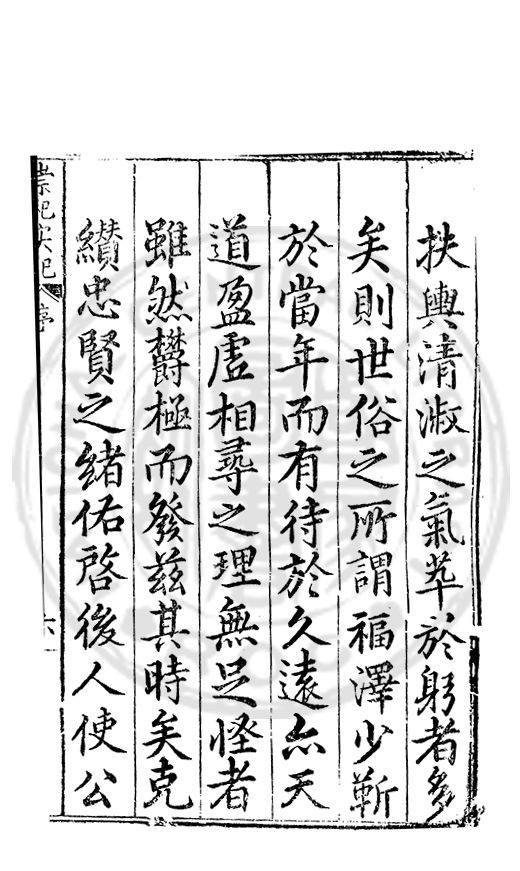 扶輿清淑之氣萃於躬者多
矣則世俗之所謂福澤少靳
於當年而有待於久遠亦天
道盈虛相尋之理無足怪者
雖然欝極而發茲其時矣克
纉忠賢之緒佑啓後人使公
崇祀实紀 序
六